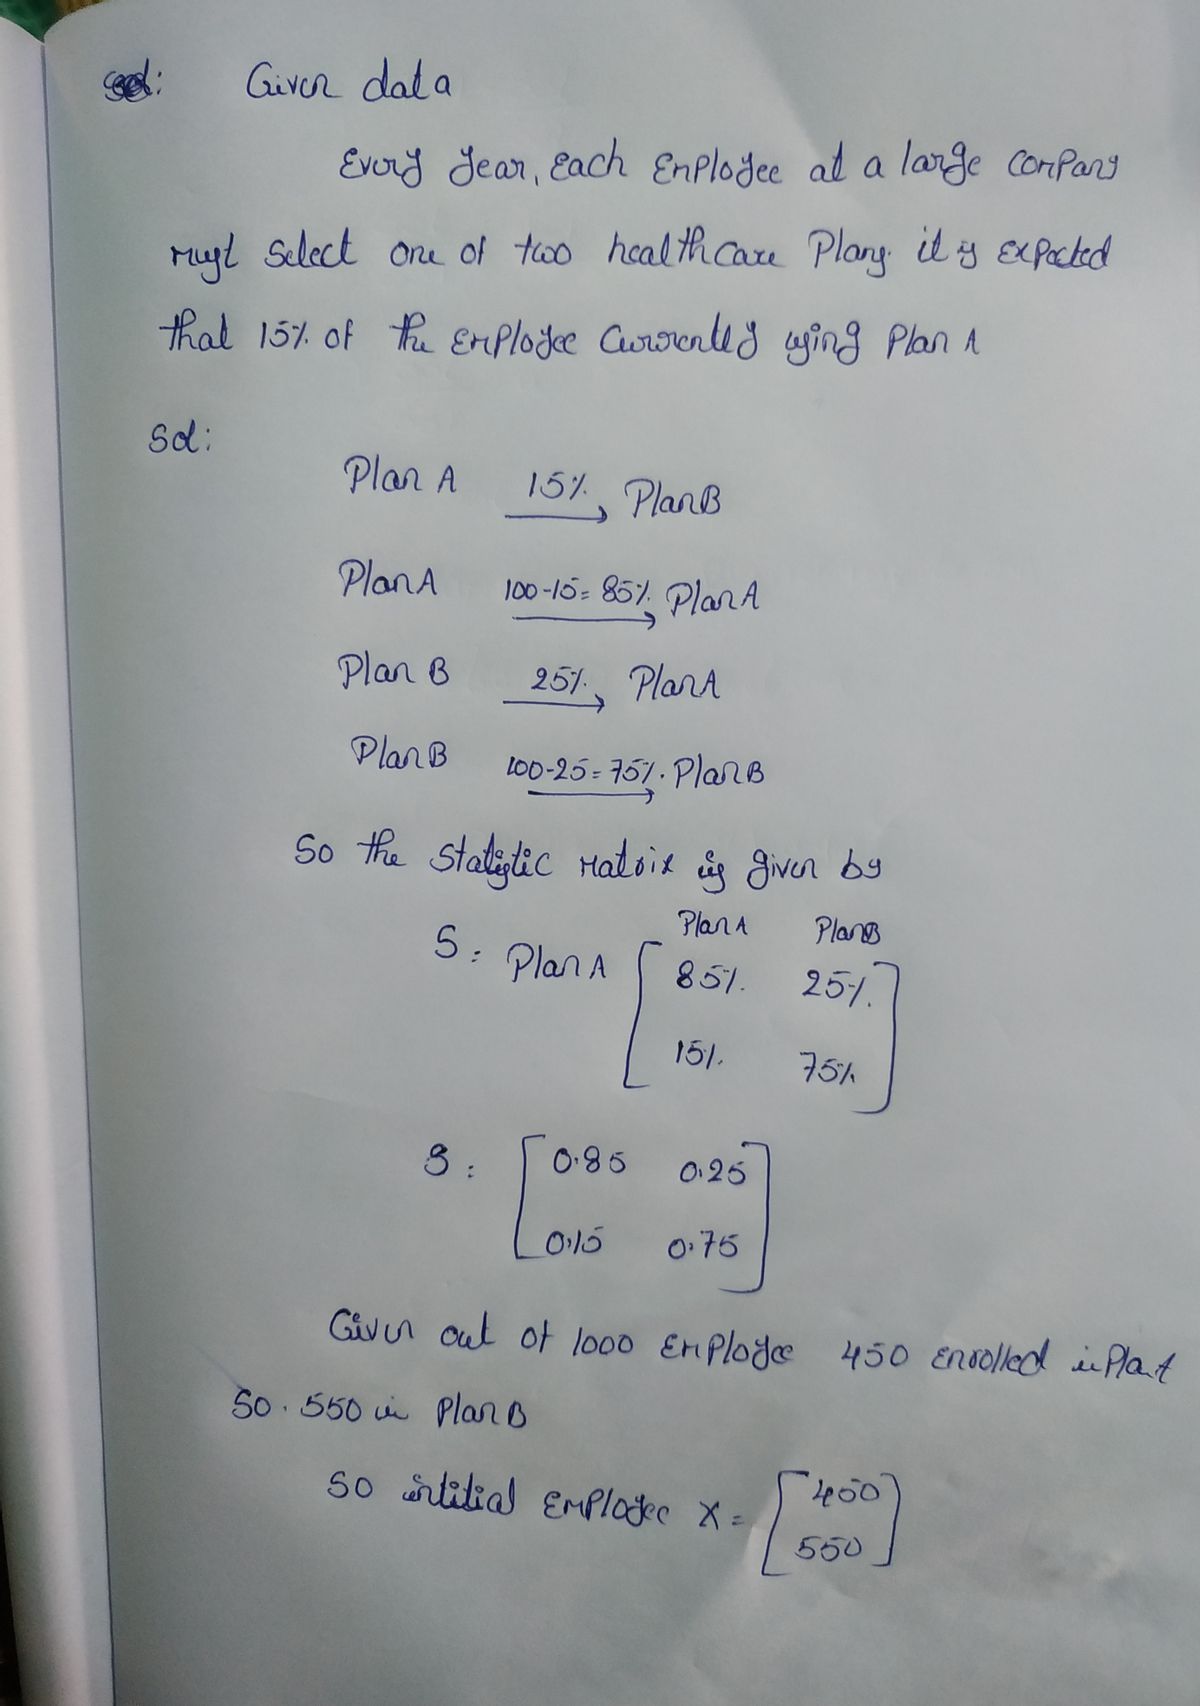 Sol: Given data
Every year, Each Employee at a large Company
must Select one of two healthcare Plans. it is expected
that 15% of the Employee Currently using Plan A
Sol:
Plan A 15% Plan B
Plan A 100-15=85% Plan A
Plan B 25% Plan A
Plan B 100-25=75%. Plan B
So the Statistic Matrix is given by
Plan A Plan B
S: Plan A [ 85% 25%.
15%. 75% ]
S: [ 0.85 0.25
0.15 0.75 ]
Given out of 1000 Employee 450 enrolled in Plan A
So. 550 in Plan B
So intitial Employee X = [ 450
550 ]